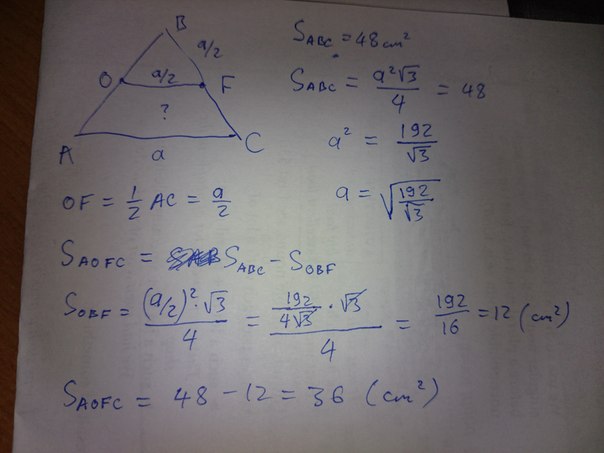 B
a/2
O a/2 F
?
A a C
S_ABC = 48 cm²
S_ABC = a²√3/4 = 48
a² = 192/√3
a = √(192/√3)
OF = 1/2 AC = a/2
S_AOFC = S_ABC - S_OBF
S_OBF = (a/2)²·√3/4 = 192/4√3 · √3/4 = 192/16 = 12 (cm²)
S_AOFC = 48 - 12 = 36 (cm²)